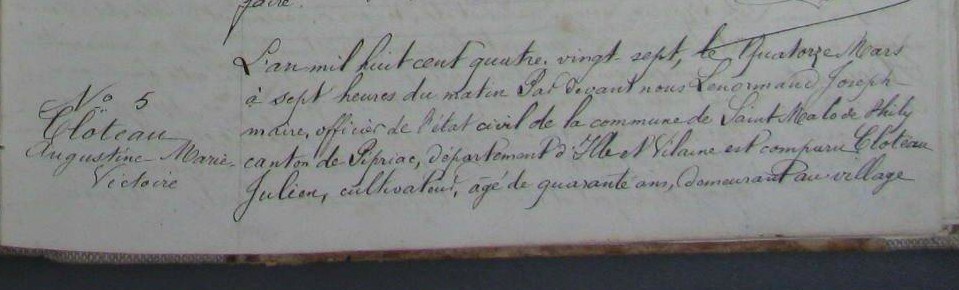 faire.
N° 5
Cloteau
Augustine Marie-
Victoire
L'an mil huit cent quatre vingt sept, le Quatorze Mars
à sept heures du matin Par devant nous Lenormand Joseph-
maire, officier de l'état civil de la commune de Saint Malo de Phily
canton de Pipriac, département d'Ille et Vilaine est comparu Cloteau
Julien, cultivateur, agé de quarante ans, demeurant au village